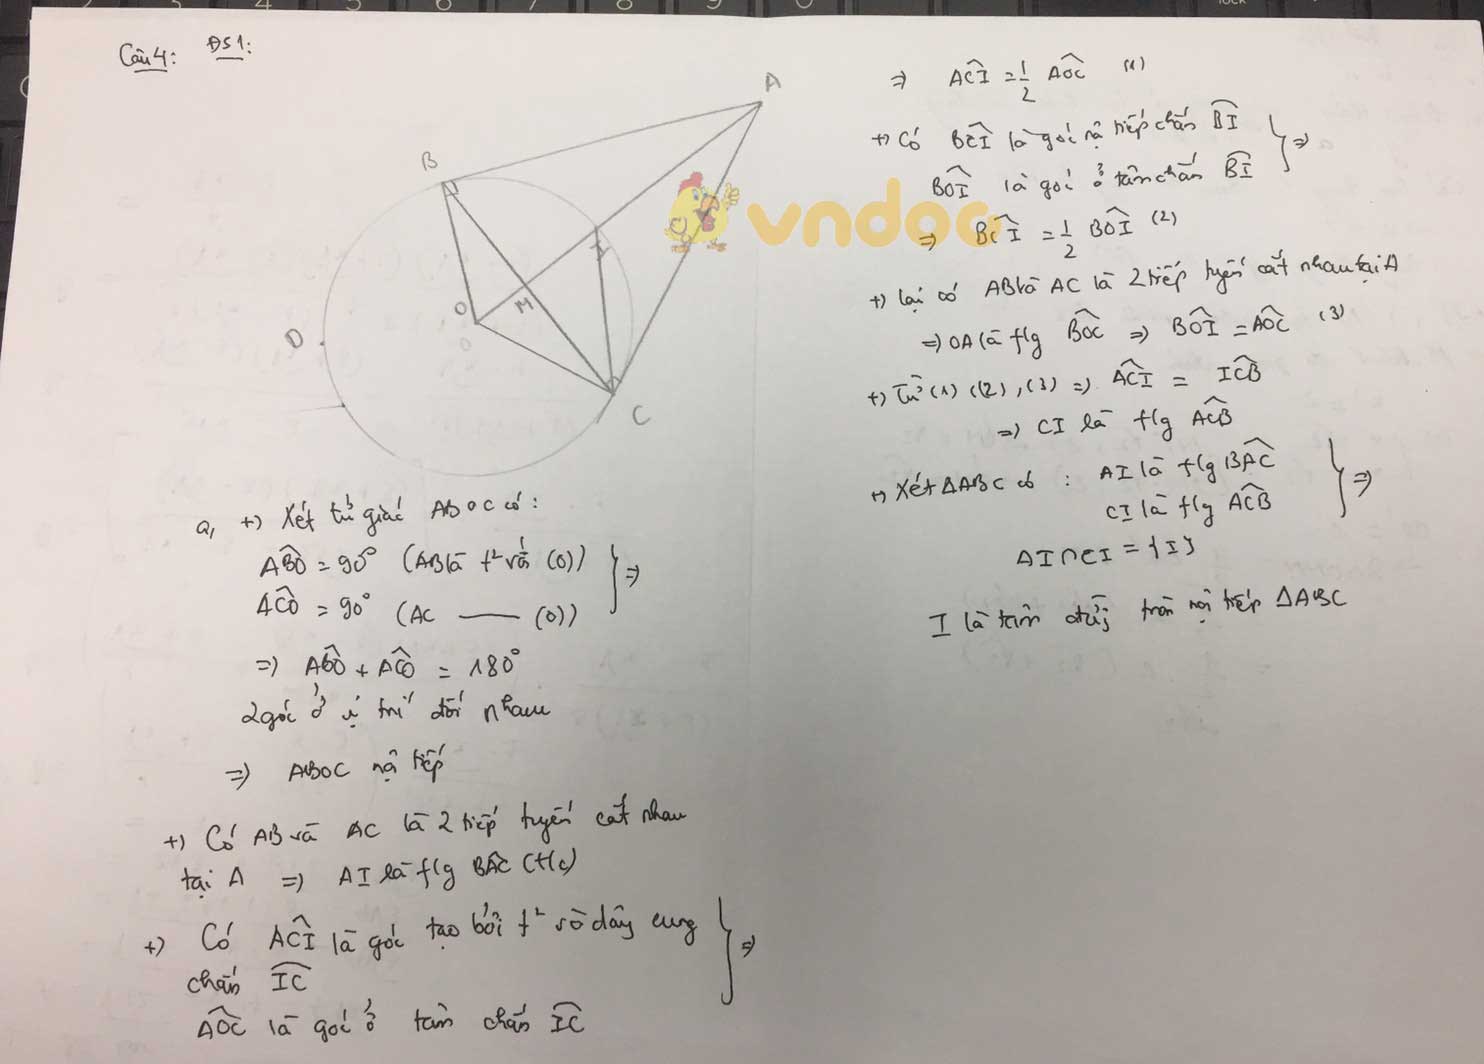 Câu 4: ĐS1:
A
B
I
O
M
D
O
C
a, +) Xét tứ giác ABOC có:
ABO = 90° (AB là t² và (O))
ACO = 90° (AC —— (O))
} =>
=> ABO + ACO = 180°
2 góc ở vị trí đối nhau
=> ABOC nội tiếp
+) Có AB và AC là 2 tiếp tuyến cắt nhau
tại A => AI là f/g BAC (t/c)
+) Có ACI là góc tạo bởi t² và dây cung
chắn IC
AOC là góc ở tâm chắn IC
} =>
=> ACI = 1/2 AOC (1)
+) Có BCI là góc nội tiếp chắn BI
BOI là góc ở tâm chắn BI
} =>
=> BCI = 1/2 BOI (2)
+) Lại có AB và AC là 2 tiếp tuyến cắt nhau tại A
=> OA là f/g BOC => BOI = AOC (3)
+) Từ (1) (2), (3) => ACI = ICB
=> CI là f/g ACB
+) Xét ΔABC có : AI là f/g BAC
CI là f/g ACB
} =>
AI ∩ CI = {I}
I là tâm đường tròn nội tiếp ΔABC
vndoc